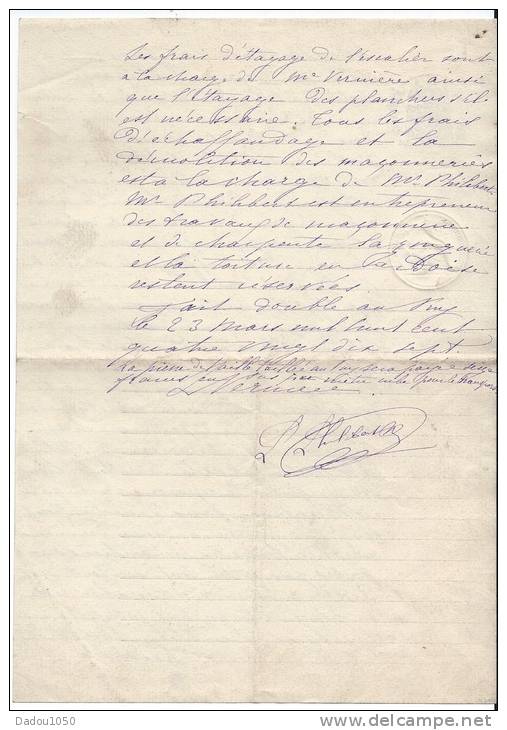 Les frais d'étayage de l'escalier sont
à la charge de Mr Vernière ainsi
que l'étayage des planchers s'il
est nécessaire. Tous les frais
d'échaffaudage et la
démolition des maçonneries
est à la charge de Mr Philibert
Mr Philibert est entrepreneur
des travaux de maçonnerie
et de charpente la zinguerie
et la toiture en
restent réservées.
Fait double au Puy
le 23 Mars mil huit cent
quatre vingt dix sept.
La pierre de taille taillée au Puy sera payée
francs mètre cube
Vernière
Philibert
Dadou1050
www.delcampe.net